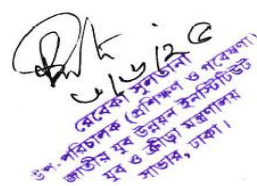 রেবেকা সুলতানা
উপ পরিচালক (প্রশিক্ষণ ও গবেষণা)
জাতীয় যুব উন্নয়ন ইনস্টিটিউট
যুব ও ক্রীড়া মন্ত্রণালয়
সাভার, ঢাকা।